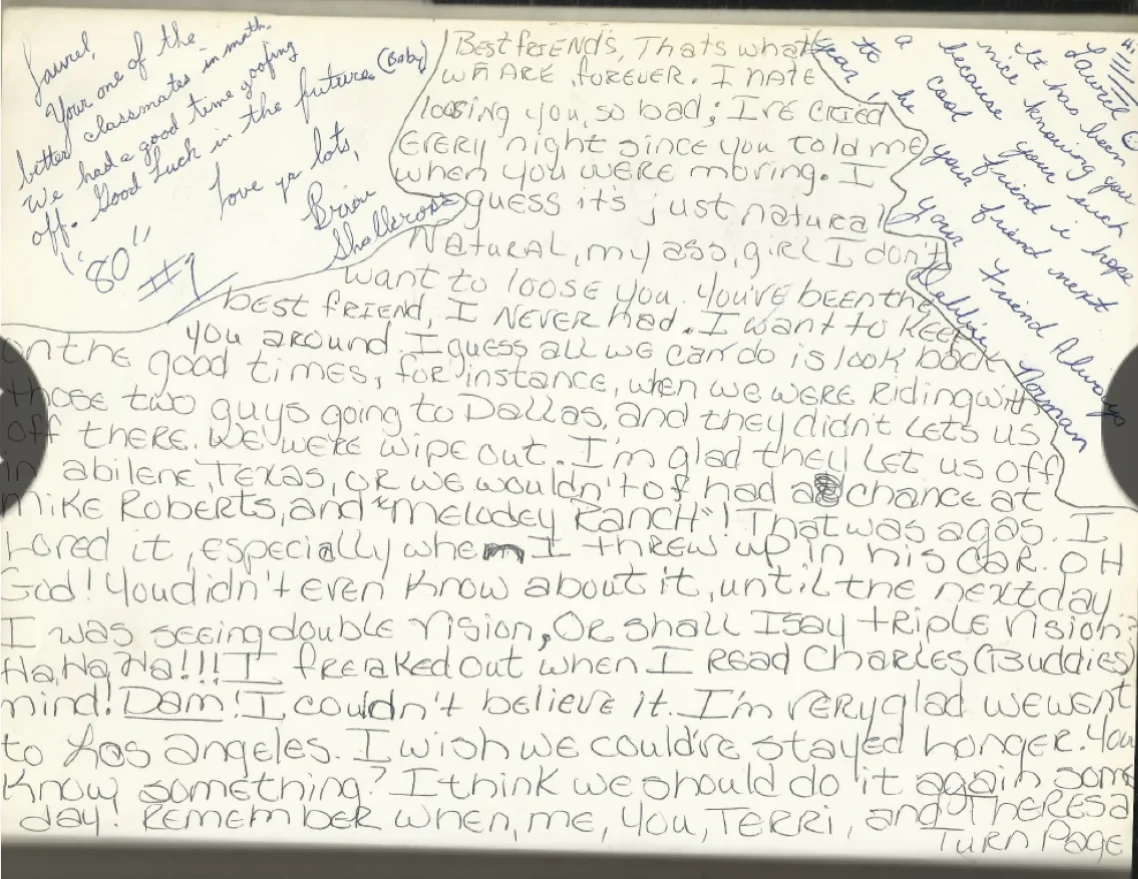 Laurel,
Your one of the
better classmates in math.
We had a good time goofing
off. Good Luck in the future (Baby)
Love ya lots,
Brian
Shallcross
"80"
#1
Best friends, Thats what
wE ARE forever. I hate
loosing you, so bad; I've cried
every night since you told me
when you were moving. I
guess it's just natural
Natural, my ass, girl I don't
want to loose you. You've been the
best friend, I never had. I want to keep
you around. I guess all we can do is look back
on the good times, for instance, when we were Riding with
those two guys going to Dallas, and they didn't Lets us
off there. We were wipe out. I'm glad they Let us off
in abilene, Texas, or we wouldn't of had a chance at
Mike Roberts, and "Melodey Ranch"! That was a gas. I
Loved it, especially when I threw up in his car. OH
God! You didn't even know about it, until the next day.
I was seeing double vision, Or shall I say triple vision?
Ha, Ha, Ha!!! I freaked out when I read Charles (Buddies)
mind! Dam! I couldn't believe it. I'm very glad we went
to Los Angeles. I wish we could've stayed Longer. You
know something? I think we should do it again some
day! Remember when, me, you, Terri, and Theresa
Turn Page
Laurel
it has been
nice knowing you
because your such
a cool friend i hope
to be your friend next
year
your Friend Always
Debbie Norman